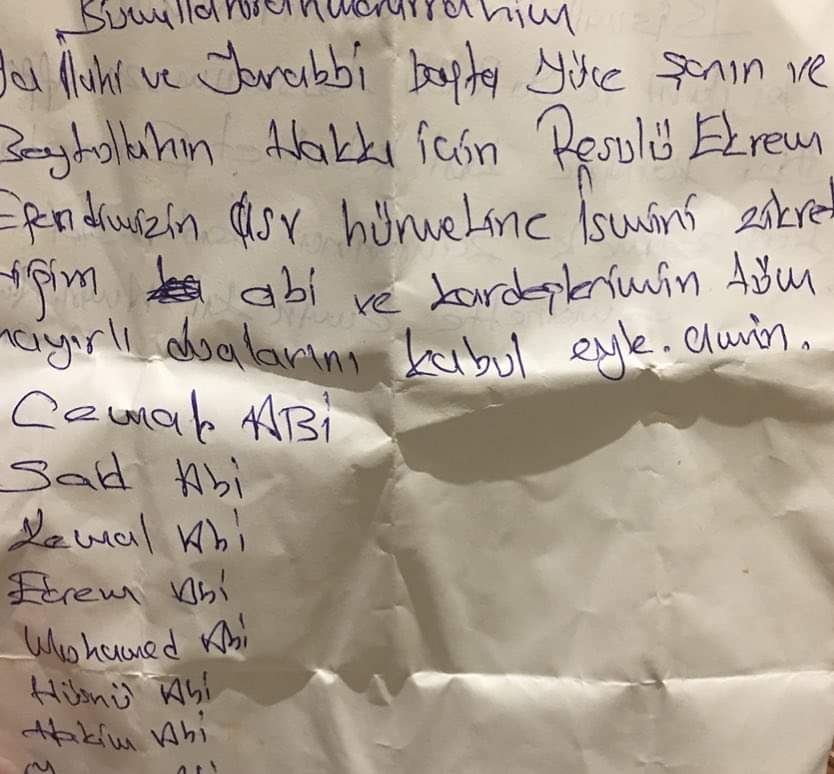 Bismillahirahmanirrahim
Ya İlahi ve Yarabbi başta Yüce şanın ve
Beytullahın Hakkı için Resulü Ekrem
Efendimizin hürmetine İsmini zikret
tiğim abi ve kardeşlerimin tüm
hayırlı dualarını kabul eyle. Amin.
Cemal ABİ
Said Abi
Kemal Abi
Ekrem Abi
Mohamed Abi
Hüsnü Abi
Hakim Abi